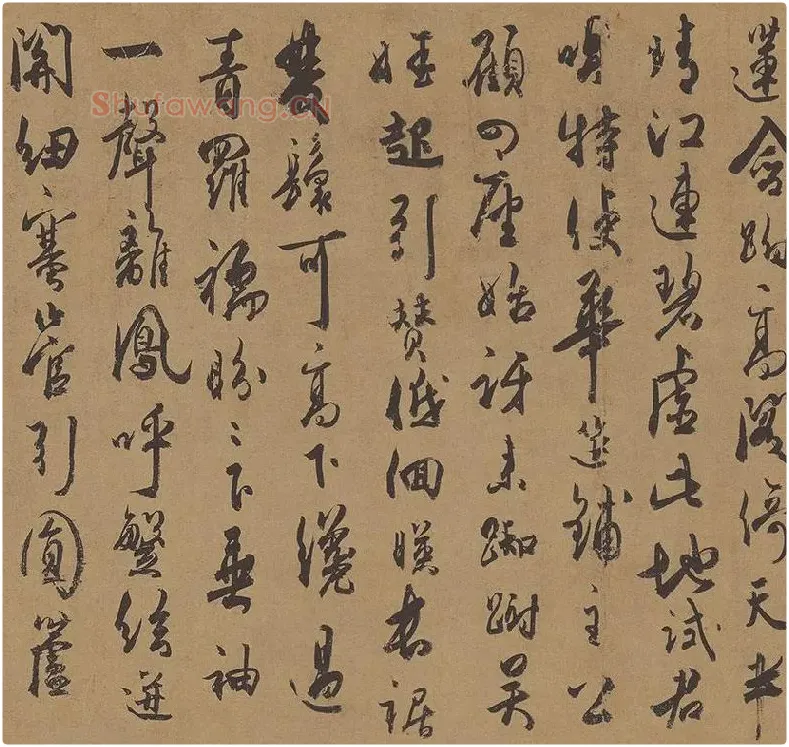 蓮含跗高閣倚天半
晴江連碧虛此地試君
唱特使華筵鋪主公
顧四座始訝來踟躕吳
娃起引贊低佪暎長裾
雙鬟可高下纔過
青羅襦盼〻下垂袖
一聲離鳳呼繁絃迸
關紐塞管引圓蘆
Shufawang.cn